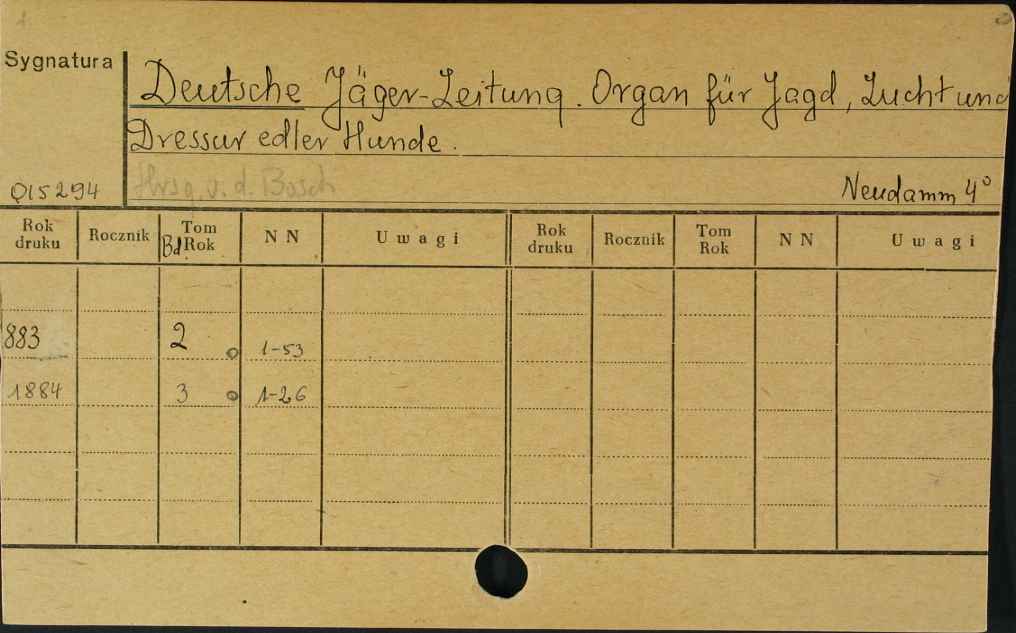 Sygnatura
Deutsche Jäger-Zeitung. Organ für Jagd, Zucht und
Dressur edler Hunde.
Hrsg. v. d. Bosch
Q15294
Neudamm 4°
Rok druku Rocznik Bd. Tom Rok NN Uwagi Rok druku Rocznik Tom Rok NN Uwagi
883 2 1-53
1884 3 1-26